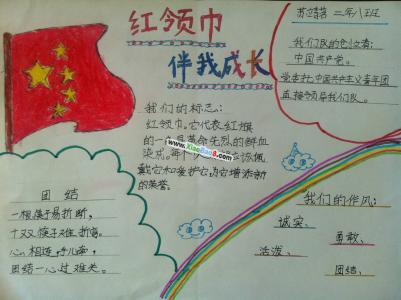 红领巾
伴我成长
二年八班
我们队的创立者:
中国共产党。
党委托中国共产主义青年团
直接领导我们队。
我们的标志:
红领巾。它代表红旗
的一角是革命先烈的鲜血
染成。每个
戴它和爱护它,为它增添新
的荣誉。
www.XiaoBao8.com
团结
一根筷子易折断,
十双筷子难折弯。
心相连,手儿牵,
团结一心过难关。
我们的作风:
诚实、
勇敢、
活泼、
团结、